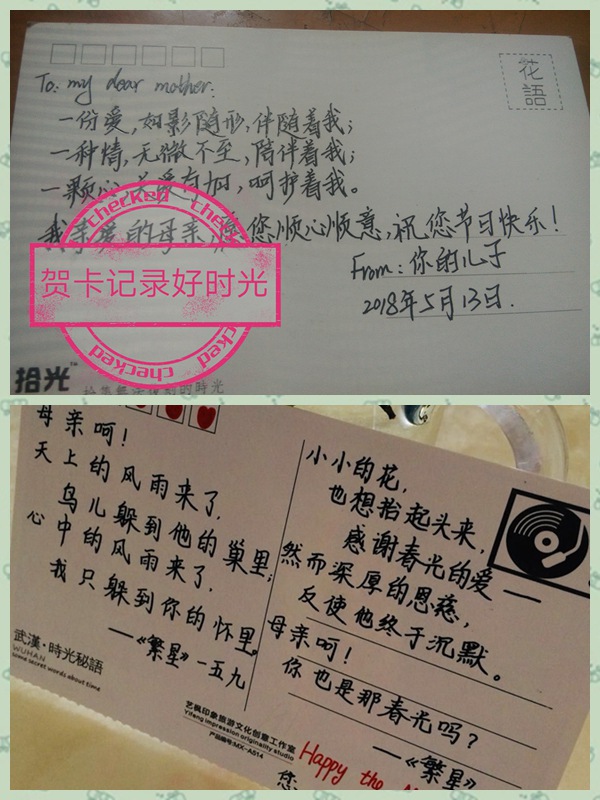 To: my dear mother.
花語
一份爱,如影随形,伴随着我;
一种情,无微不至,陪伴着我;
一颗心,关爱有加,呵护着我。
我亲爱的母亲,愿您顺心顺意,祝您节日快乐!
From:你的儿子
2018年5月13日.
checked
checked
贺卡记录好时光
checked
checked
拾光™
母亲呵!
天上的风雨来了,
鸟儿躲到他的巢里;
心中的风雨来了,
我只躲到你的怀里。
——《繁星》一五九
武漢·時光秘語
WUHAN
some secret words about time
小小的花,
也想抬起头来,
感谢春光的爱——
然而深厚的恩慈,
反使他终于沉默。
母亲呵!
你也是那春光吗?
——《繁星》
艺枫印象旅游文化创意工作室
Yifeng impression originality studio
产品编号:MX-A514
Happy the
您